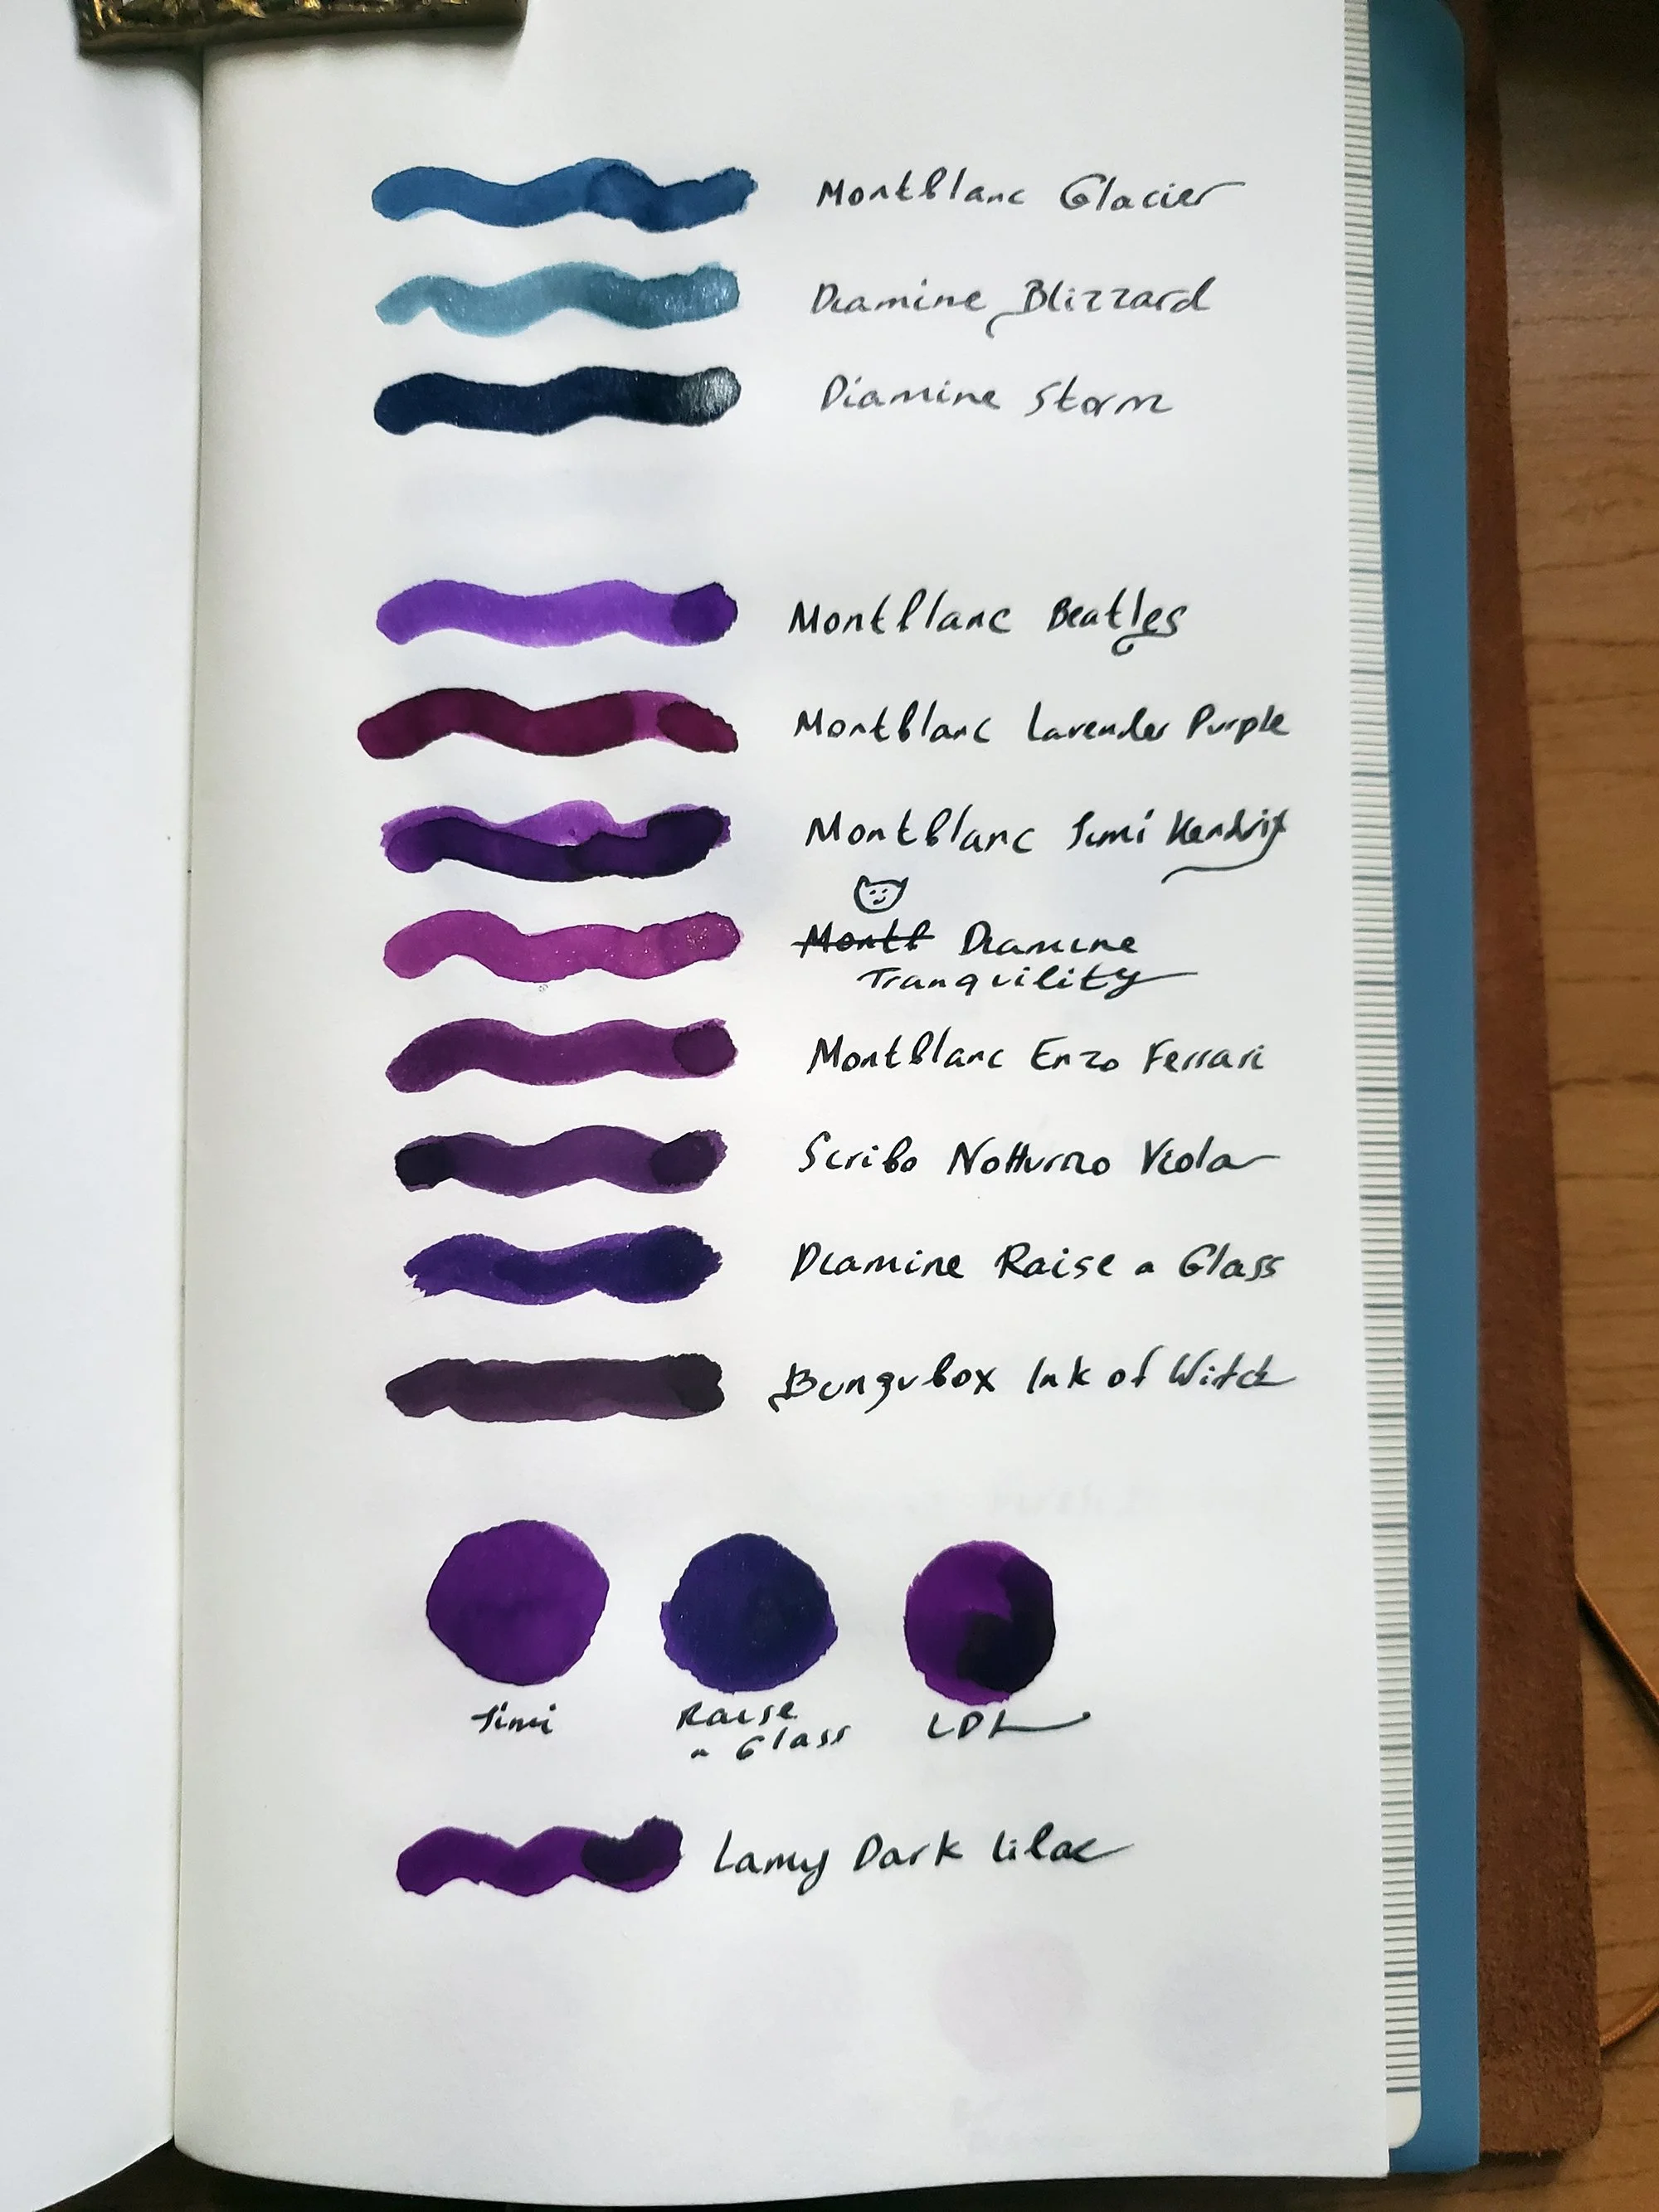 Montblanc Glacier
Diamine Blizzard
Diamine Storm
Montblanc Beatles
Montblanc Lavender Purple
Montblanc Jimi Hendrix
Montb Diamine
Tranquility
Montblanc Enzo Ferrari
Scribo Notturno Viola
Diamine Raise a Glass
Bungubox Ink of Witch
Jimi Raise LDL
a Glass
Lamy Dark Lilac